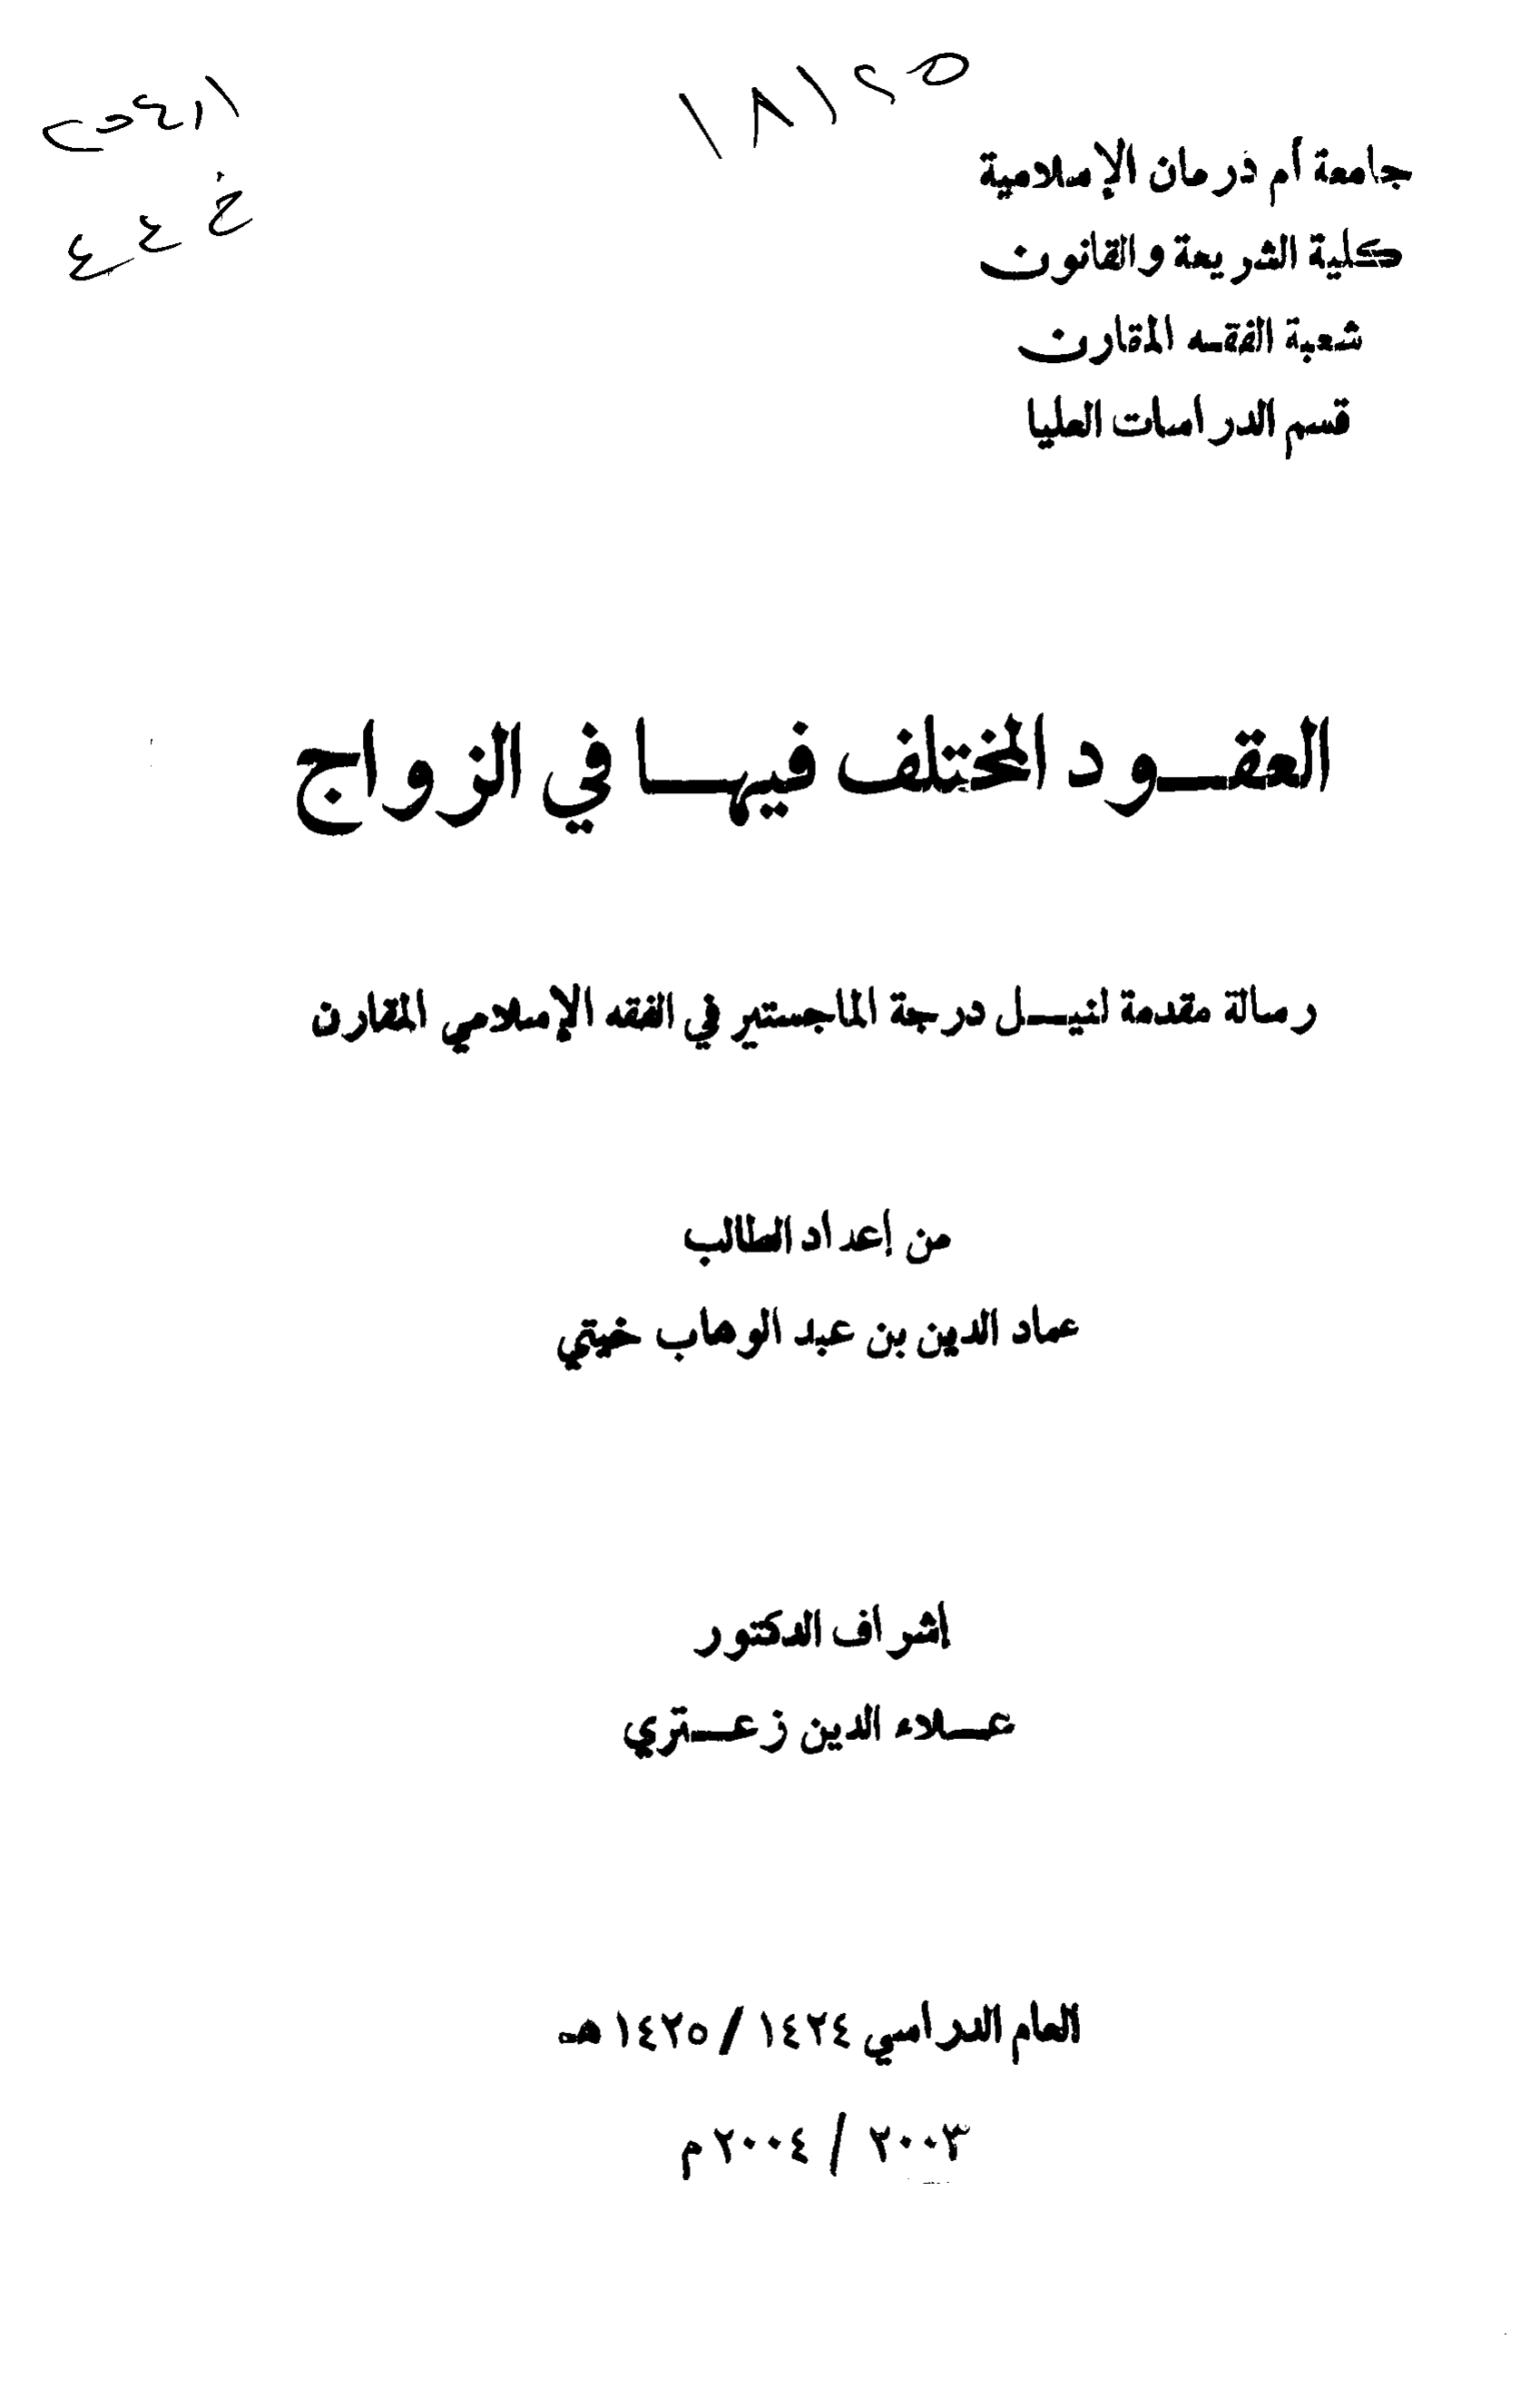 جامعة أم درمان الإسلامية
كلية الشريعة والقانون
شعبة الفقه المقارن
قسم الدراسات العليا
العقود المختلف فيها في الزواج
رسالة مقدمة لنيل درجة الماجستير في الفقه الإسلامي المقارن
من إعداد الطالب
عماد الدين بن عبد الوهاب خيتي
إشراف الدكتور
علاء الدين زعتري
العام الدراسي ١٤٢٤ / ١٤٢٥ هـ
٢٠٠٣ / ٢٠٠٤ م